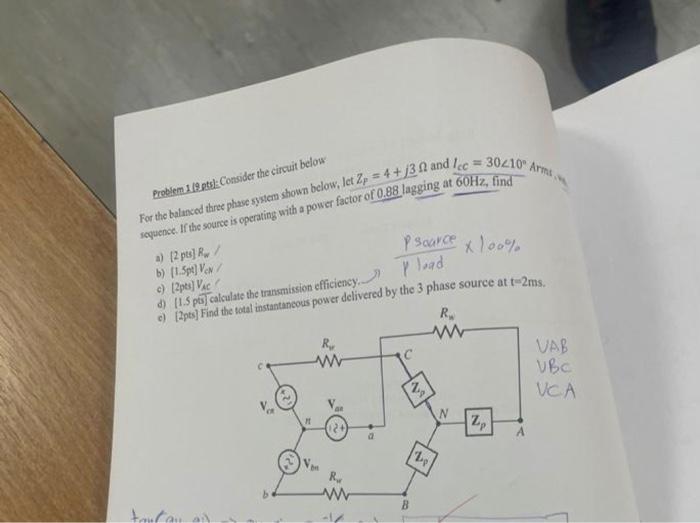 Problem 1 (9 pts): Consider the circuit below
For the balanced three phase system shown below, let Zp = 4 + j3 Ω and Icc = 30∠10° Arms,
sequence. If the source is operating with a power factor of 0.88 lagging at 60Hz, find
a) [2 pts] Rw
b) [1.5pt] VCN
c) [2pts] VAC
d) [1.5 pts] calculate the transmission efficiency.
P source / P load x 100%
e) [2pts] Find the total instantaneous power delivered by the 3 phase source at t=2ms.
Rw
Rw
c
C
VAB
VBC
VCA
Vcn
Zp
n
Van
a
N
Zp
A
Vbn
Zp
Rw
b
B